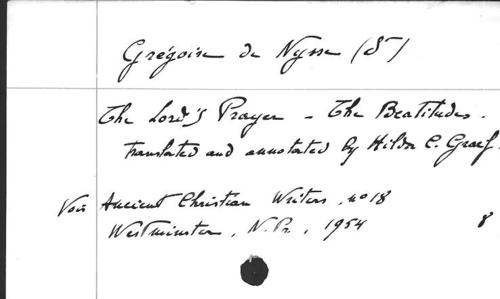 Grégoire de Nysse (St)
The Lord's Prayer - The Beatitudes.
Translated and annotated by Hilda C. Graef.
Voir Ancient Christian Writers, no 18
Westminster, 1954
8